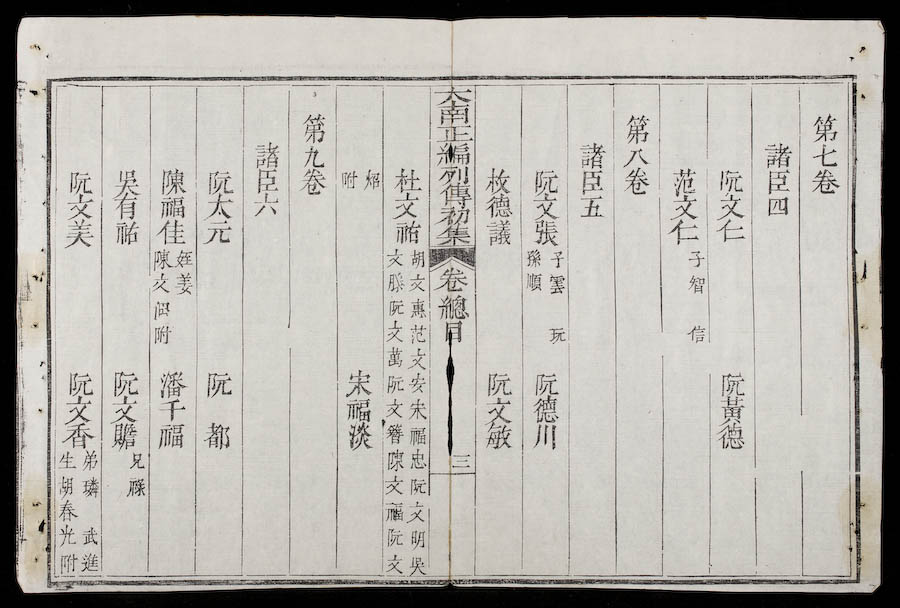 第七卷
諸臣四
阮文仁 阮黃德
范文仁 子智 信
第八卷
諸臣五
阮文張 子雲 玩 孫順 阮德川
枚德議 阮文敏
大南正編列傳初集 卷總目 三
杜文祐 胡文惠范文安宋福忠阮文明吳
文縢阮文萬阮文簪陳文福阮文
附 宋福淡
第九卷
諸臣六
阮太元 阮都
陳福佳 姪姜 陳文 附 潘千福
吳有祐 阮文贍 兄縢
阮文美 阮文香 弟璘 武進
生胡春光附